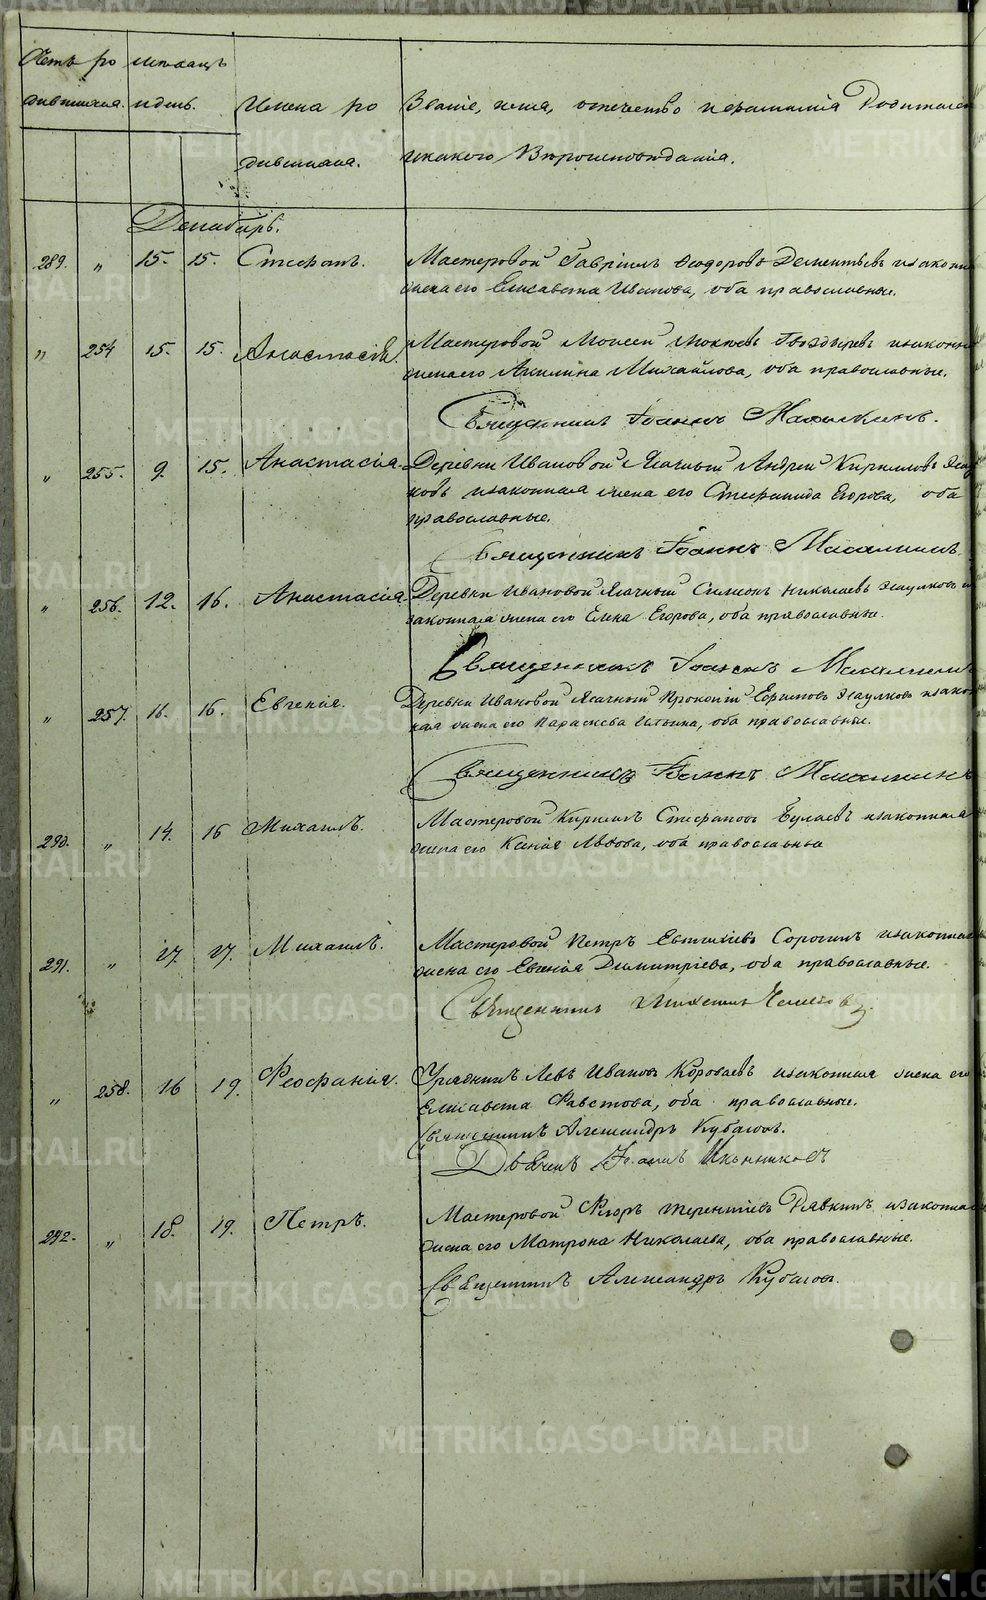 Счетъ ро мѣсяцъ
дившихся. и день. Имена ро Званіе, имя, отчество и фамилія Родителей
дившихся. и какого Вѣроисповѣданія.
Декабрь.
289. " 15. 15. Стефанъ. Мастеровой Гавріилъ Ѳеодоровъ Дементьевъ и законная
жена его Елисавета Иванова, оба православные.
" 254 15. 15. Анастасія. Мастеровой Моисей Гвоздыревъ и законная
жена его Акилина Михайлова, оба православные.
Священникъ Іоаннъ
" 255. 9. 15. Анастасія. Деревни Ивановой Ясачный Андрей Кирилловъ
и законная жена его Стефанида Егорова, оба
православные.
Священникъ Іоаннъ
" 256. 12. 16. Анастасія. Деревни Ивановой Ясачный Симеонъ Николаевъ Есаулковъ и
законная жена его Елена Егорова, оба православные.
Священникъ Іоаннъ
" 257. 16. 16. Евгенія. Деревни Ивановой Ясачный Прокопій Ефимовъ Есаулковъ и закон
ная жена его Параскева Ильина, оба православные.
Священникъ Іоаннъ
290. " 14. 16 Михаилъ. Мастеровой Кириллъ Стефановъ Булаевъ и законная
жена его Ксенія Львова, оба православные
291. " 17. 17. Михаилъ. Мастеровой Петръ Евтихіевъ Сорогинъ и законная
жена его Евгенія Димитріева, оба православные.
Священникъ
" 258. 16 19. Ѳеофанія. Урядникъ Левъ Ивановъ Короваевъ и законная жена его
Елисавета Фавстова, оба православные.
Священникъ Александръ Кубасовъ.
Дьячекъ Іоаннъ Иконниковъ
292. " 18. 19. Петръ. Мастеровой Ѳеодоръ Терентіевъ Рявкинъ и законная
жена его Матрона Николаева, оба православные.
Священникъ Александръ Кубасовъ.
METRIKI.GASO-URAL.RU